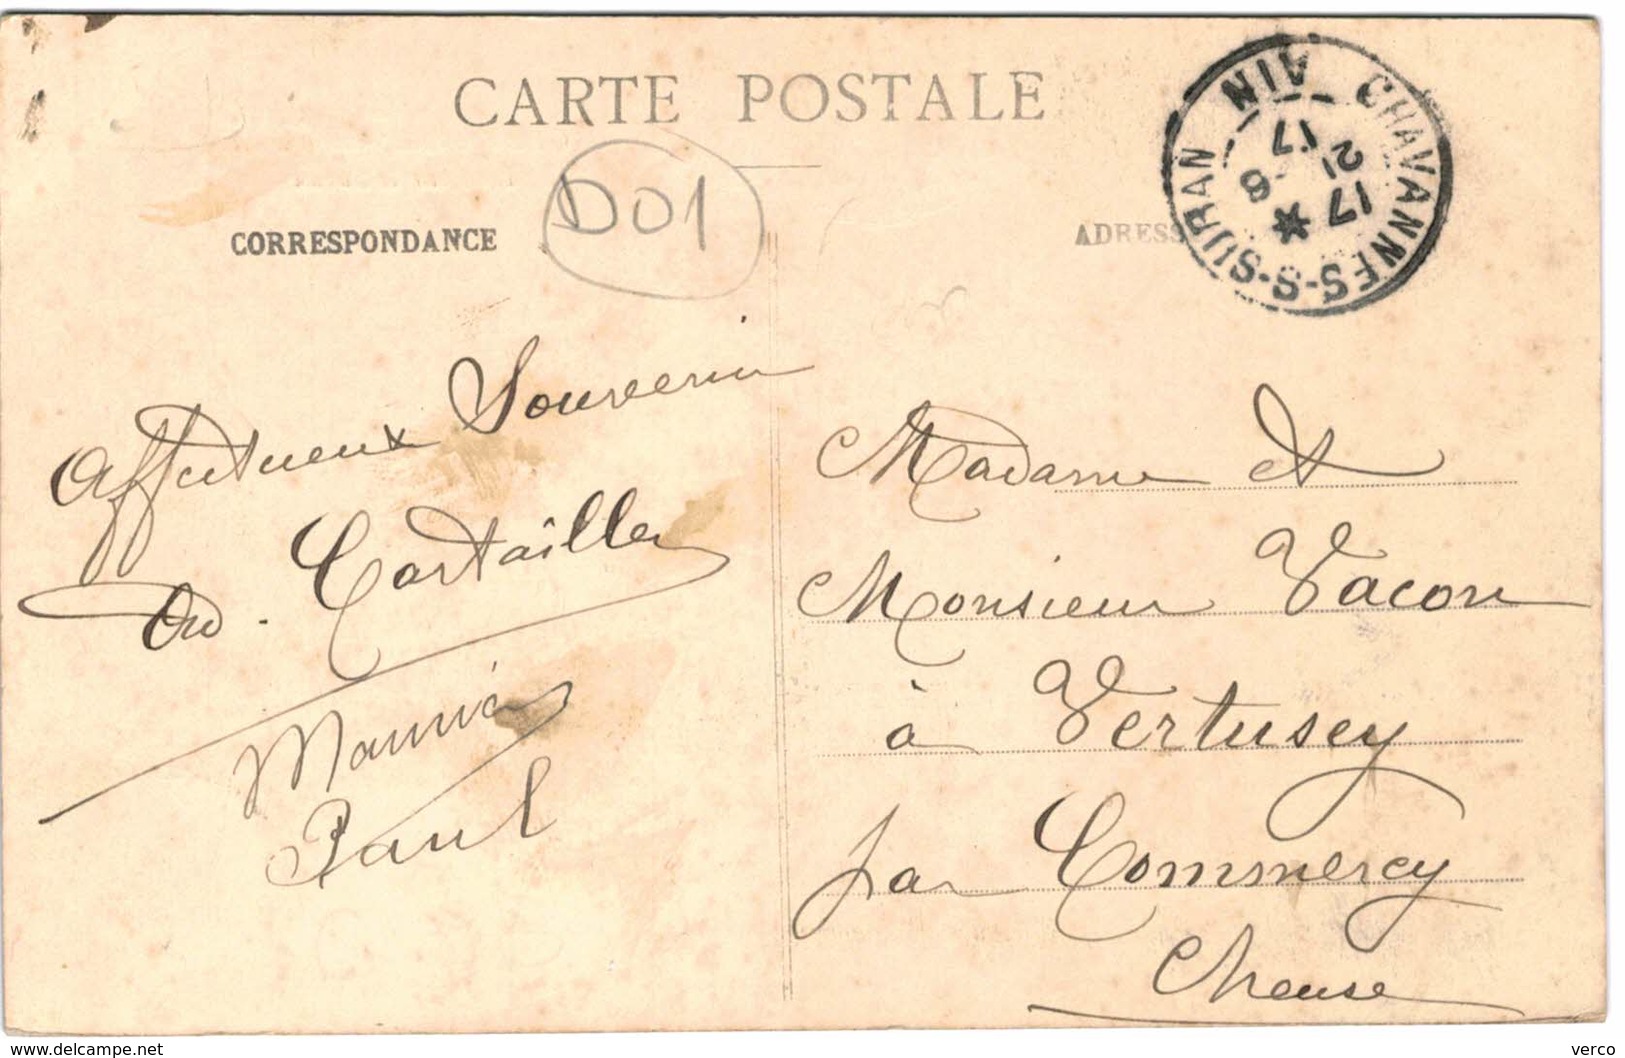 CARTE POSTALE
D01
CORRESPONDANCE
ADRESS
CHAVANNES-S-SURAN
AIN
17
21
17
8
Affectueux Souvenir
Cartailler
Maurice
Paul
Madame et
Monsieur Vacon
à Vertusey
par Commercy
Meuse
www.delcampe.net
verco